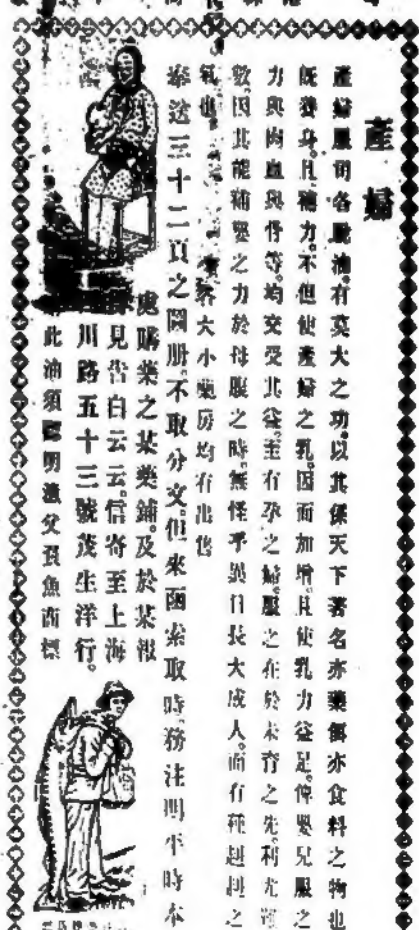 產婦
產婦服司各脫油。有莫大之功。以其係天下著名亦藥餌亦食料之物也
既養身。且補力。不但使產婦之乳。因而加增。且使乳力益足。俾嬰兒服之
力與肉血與骨等。均交受其益。至有孕之婦。服之在於未育之先。利尤
數。因其能補嬰之力於母腹之時。無怪乎異日長大成人。而有種趙趙之
氣也
各大小藥房均有出售
奉送三十二頁之圖册。不取分文。但來函索取時。務注明平時在
處購藥之某藥鋪及於某報
見告白云云。信寄至上海
川路五十三號茂生洋行。
此油須認明漁父負魚商標